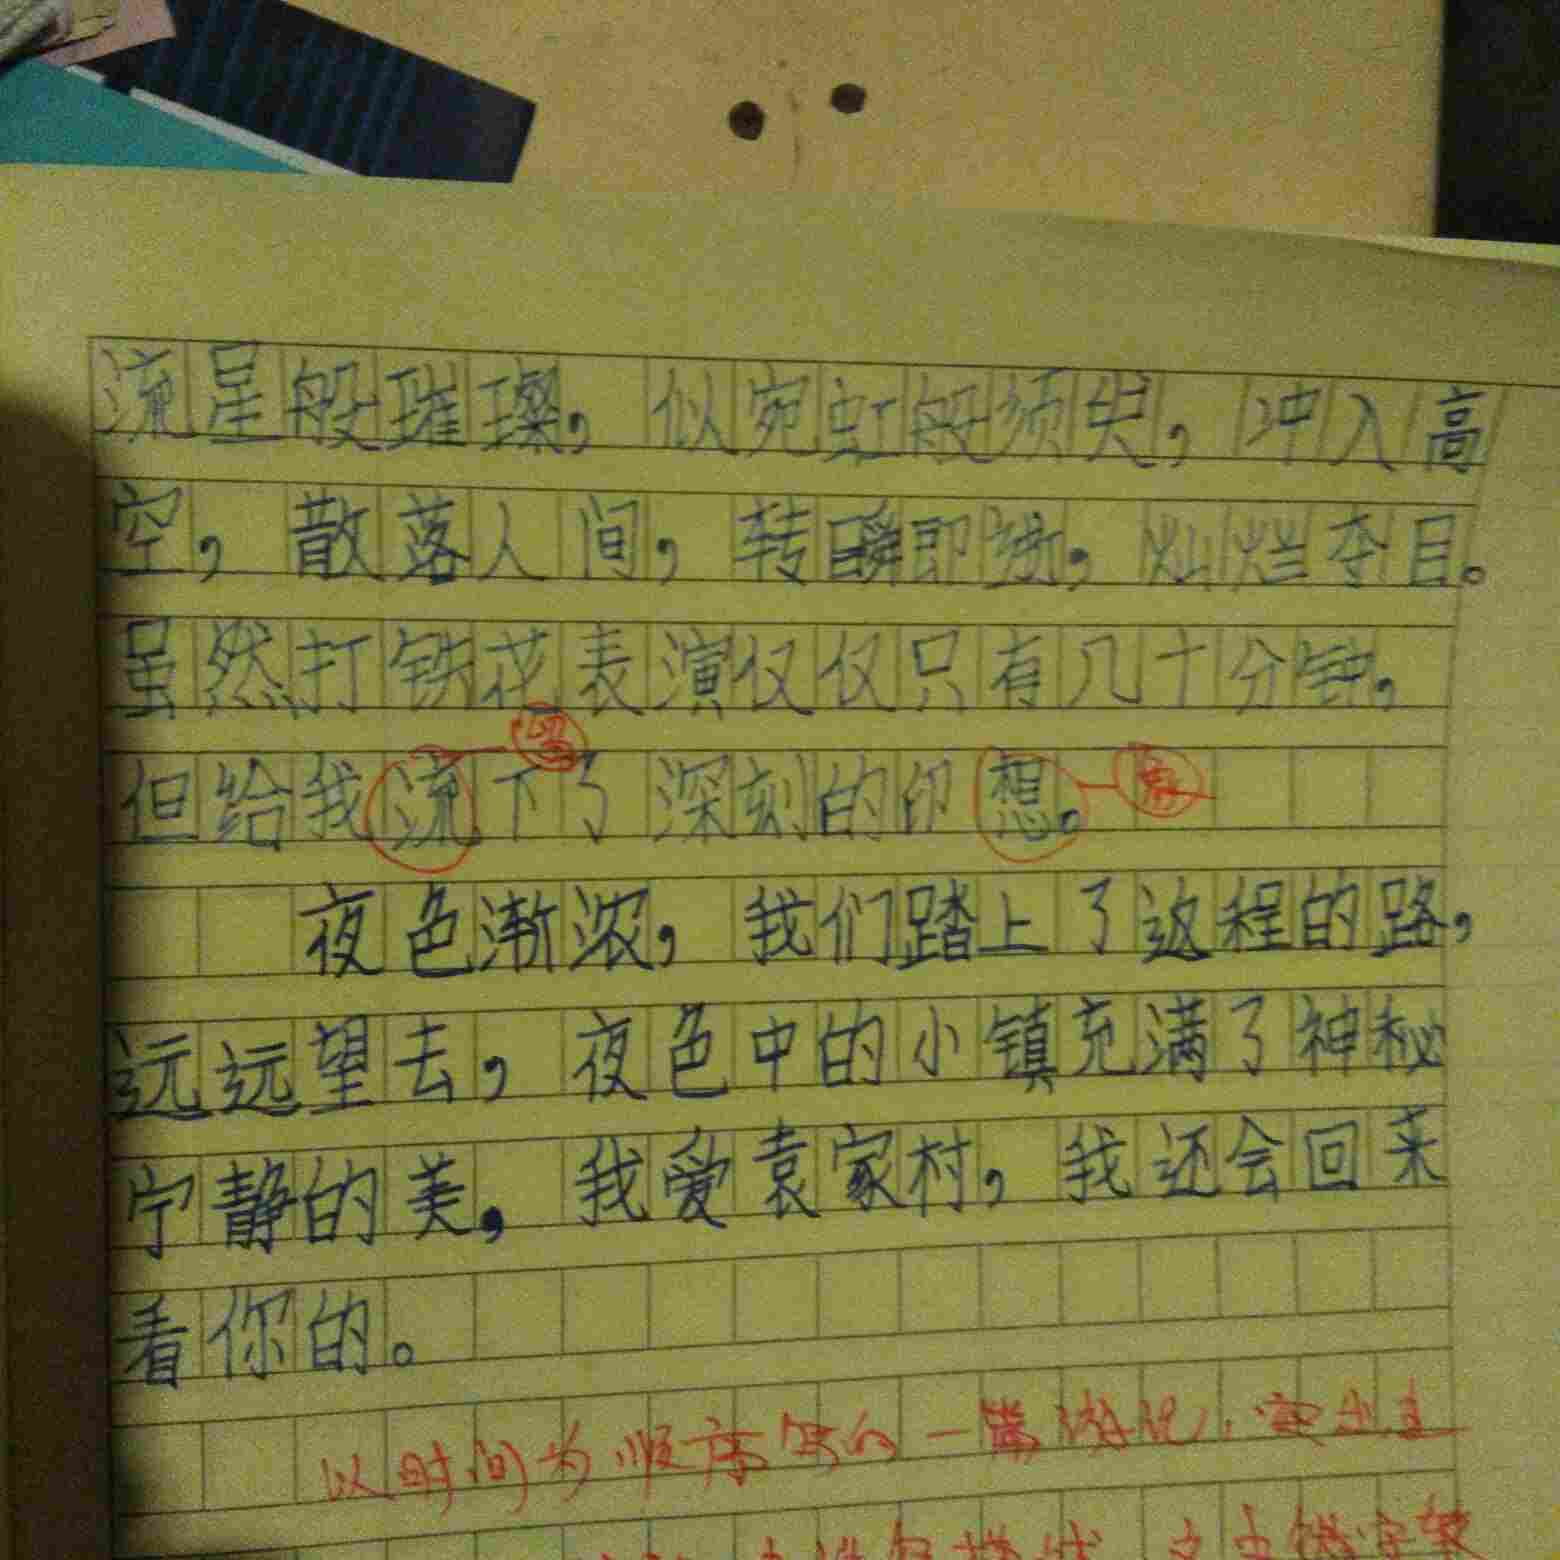 流星般璀璨，似宛虹般须臾，冲入高
空，散落人间，转瞬即逝，灿烂夺目。
虽然打铁花表演仅仅只有几十分钟，
留
但给我流下了深刻的印想。象
夜色渐浓，我们踏上了返程的路，
远远望去，夜色中的小镇充满了神秘
宁静的美。我爱袁家村，我还会回来
看你的。
以时间为顺序写的一篇游记，突出重